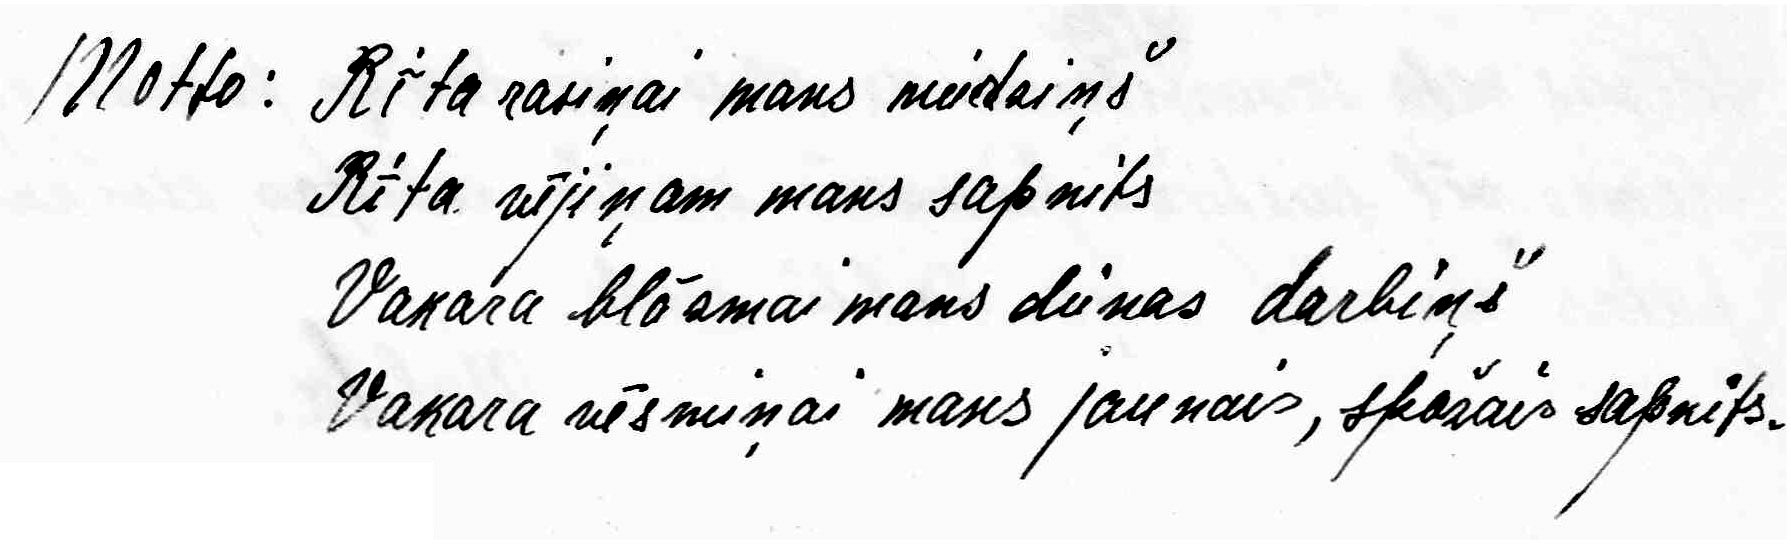 Motto: Rīta rasiņai mans miedziņš
Rīta vējiņam mans sapnīts
Vakara blāsmai mans dienas darbiņš
Vakara vēsmiņai mans jaunais, spožais sapnīts.